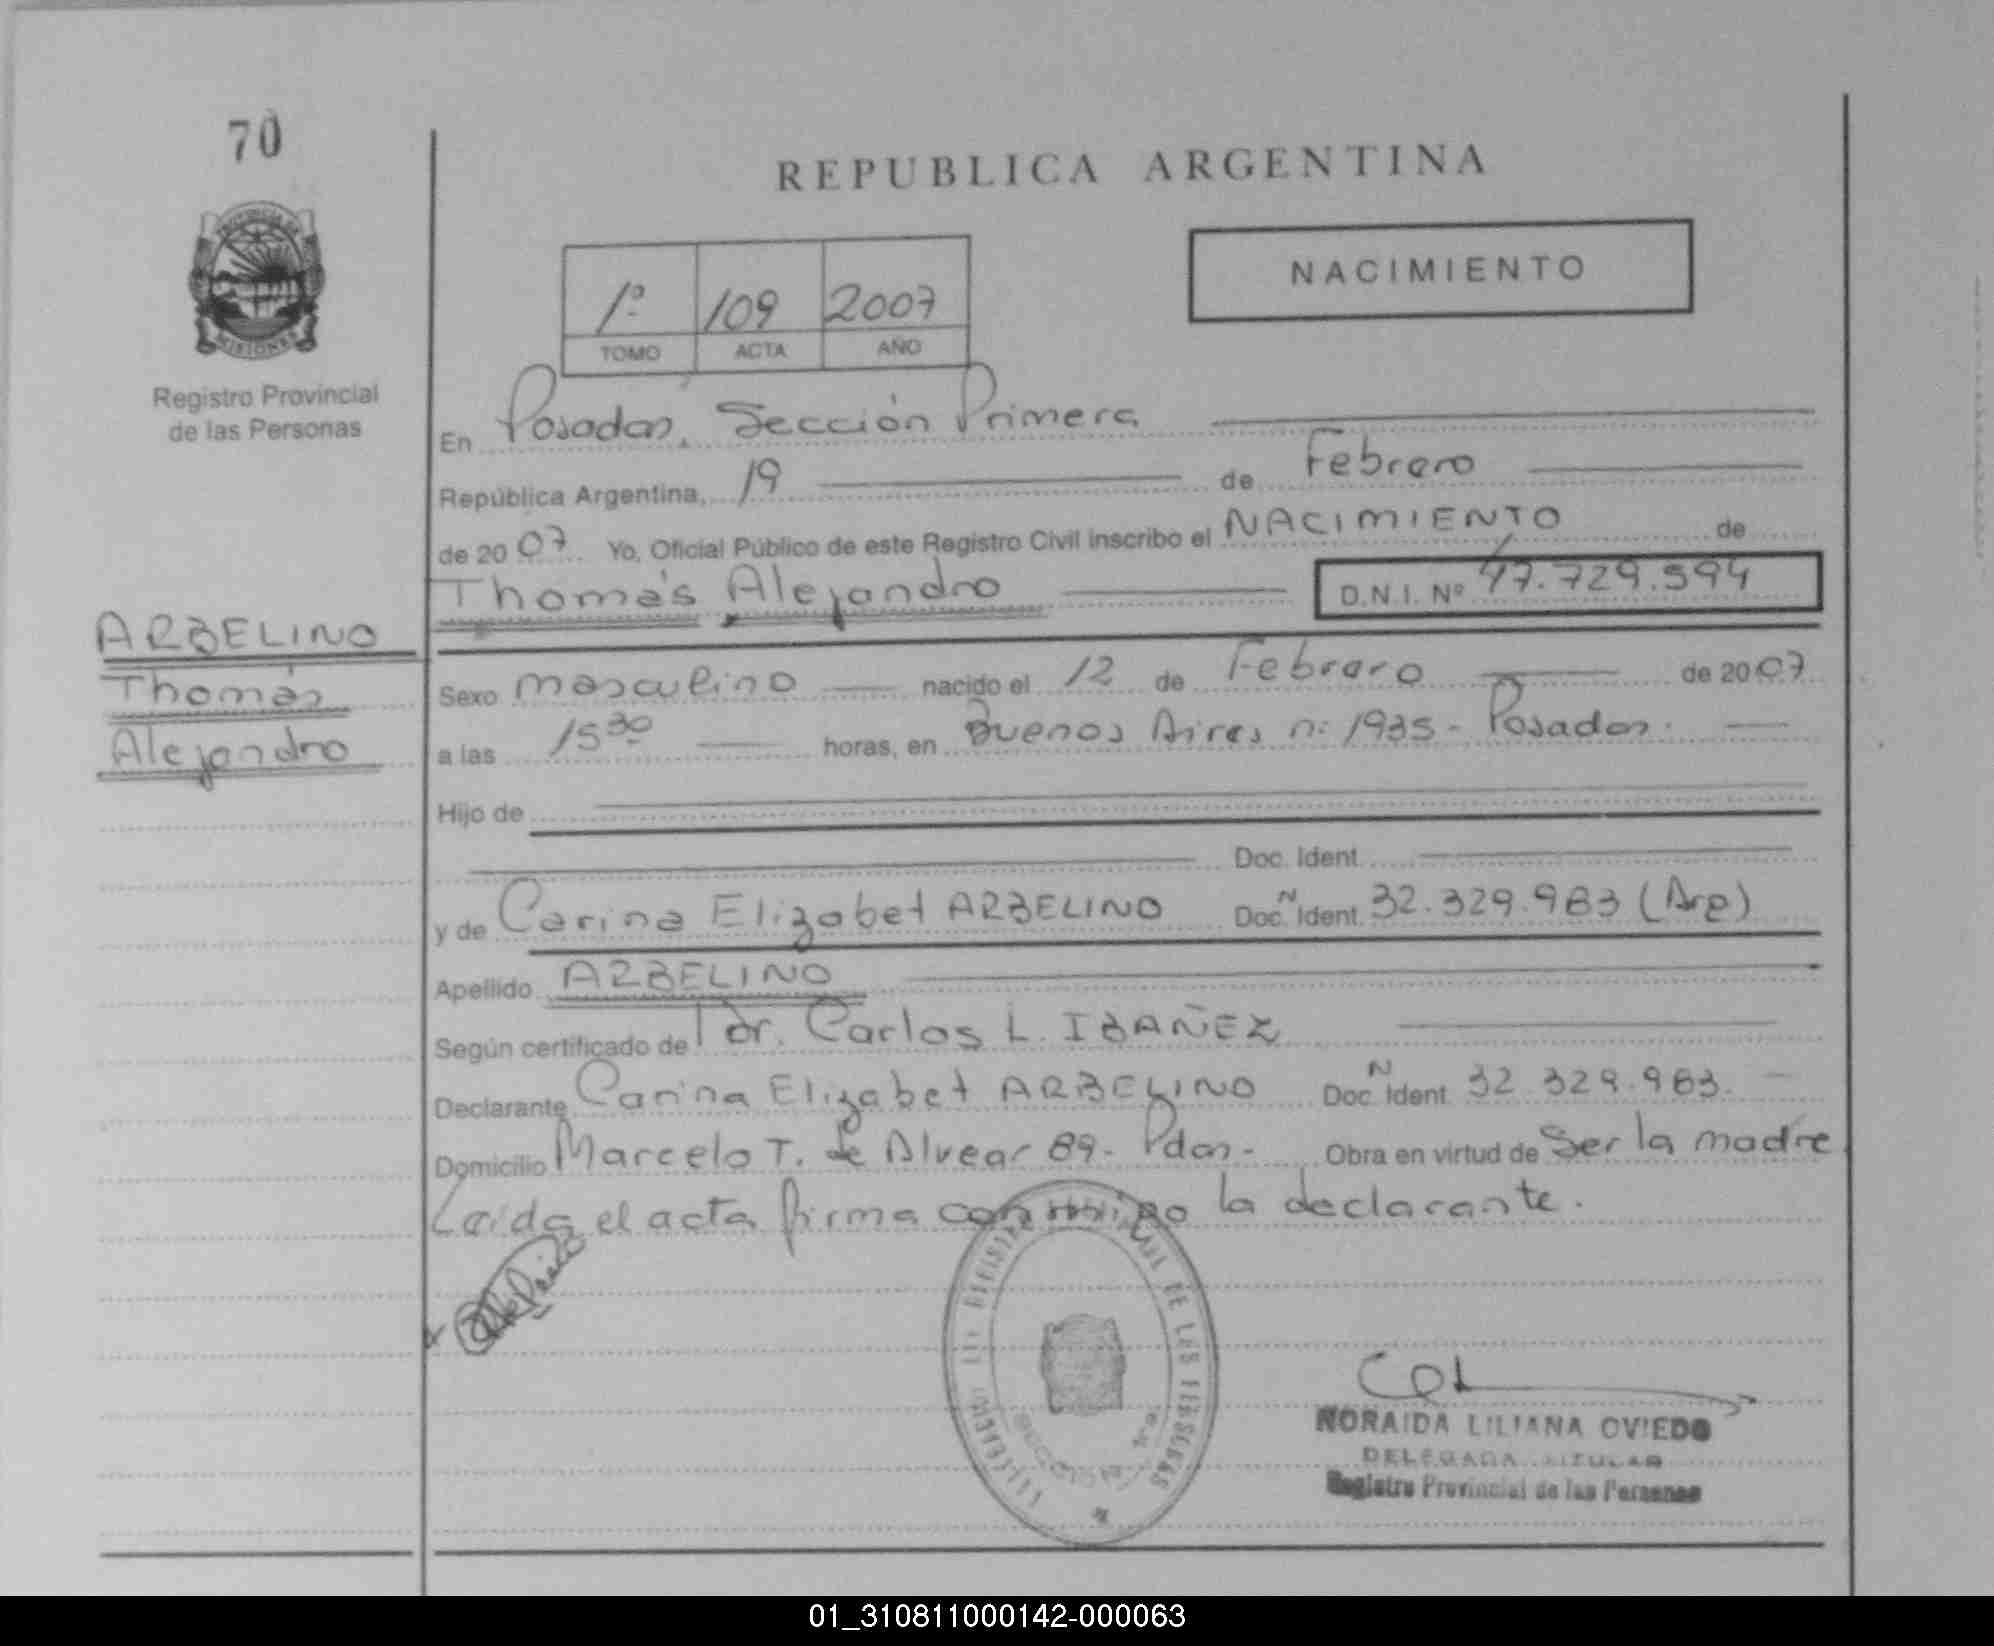 70
REPUBLICA ARGENTINA
PROVINCIA DE
MISIONES
Registro Provincial
de las Personas
NACIMIENTO
1º 109 2007
TOMO ACTA AÑO
En Posadas, Sección Primera
República Argentina, 19 de Febrero
de 2007. Yo, Oficial Público de este Registro Civil inscribo el NACIMIENTO de
Thomás Alejandro D.N.I. Nº 47.729.594
ARBELINO
Thomás
Alejandro
Sexo masculino nacido el 12 de Febrero de 2007
a las 15 30 horas, en Buenos Aires nº 1935 - Posadas.
Hijo de
Doc. Ident.
y de Carina Elizabet ARBELINO Doc. N Ident. 32.329.983 (Arg)
Apellido ARBELINO
Según certificado de Dr. Carlos L. IBAÑEZ
Declarante Carina Elizabet ARBELINO Doc. N Ident. 32.329.983.
Domicilio Marcelo T. de Alvear 89 - Pdas - Obra en virtud de Ser la madre
Leida el acta firma conmigo la declarante.
DE LAS PERSONAS
SECCION 1ra.
NORAIDA LILIANA OVIEDO
DELEGADA TITULAR
Registro Provincial de las Personas
01_310811000142-000063